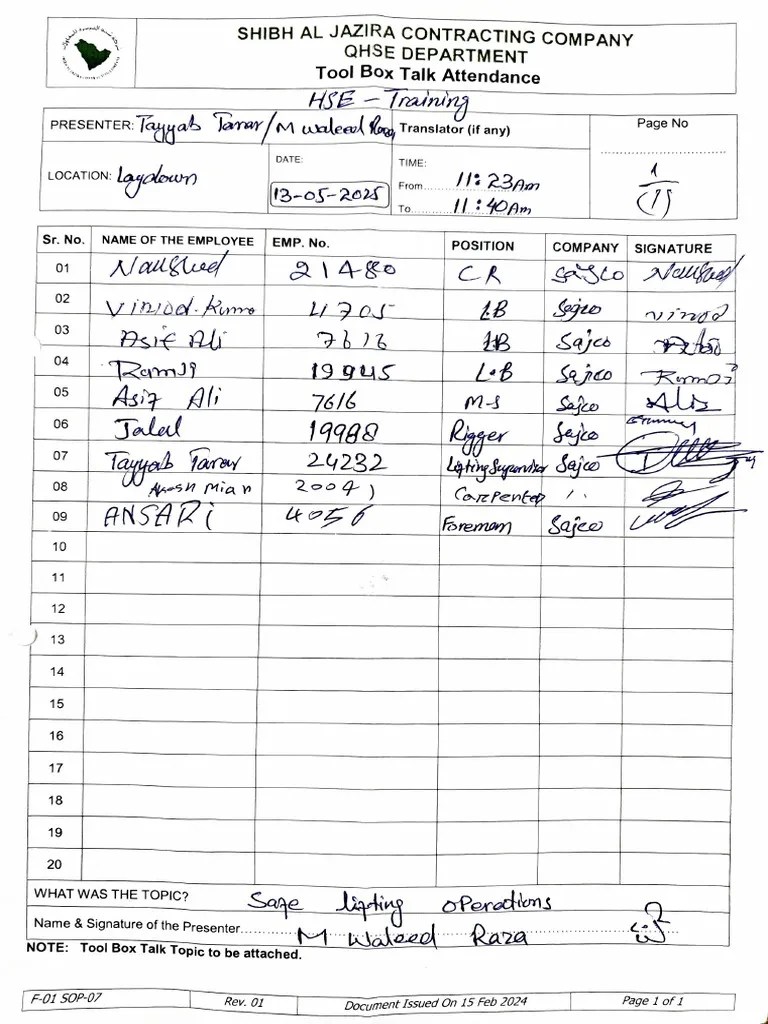 SHIBH AL JAZIRA CONTRACTING COMPANY
QHSE DEPARTMENT
Tool Box Talk Attendance
HSE - Training
PRESENTER: Tayyab Tarar / M Waleed Raza Translator (if any) Page No
LOCATION: Laydown DATE: 13-05-2025 TIME: From 11:23 Am To 11:40 Am 1/(1)
Sr. No. NAME OF THE EMPLOYEE EMP. No. POSITION COMPANY SIGNATURE
01 Naushed 21480 CR Sajco Naushed
02 Vinod. Kumo 4705 LB Sajco Vinod
03 Asif Ali 7616 LB Sajco
04 Ramji 19945 L.B Sajco Ramji
05 Asif Ali 7616 M-S Sajco Ali
06 Jalal 19988 Rigger Sajco
07 Tayyab Tarar 24232 Lifting Supervisor Sajco
08 Mian 20041 Carpenter ,,
09 ANSARi 4056 Foreman Sajco
10
11
12
13
14
15
16
17
18
19
20
WHAT WAS THE TOPIC? Safe lifting operations
Name & Signature of the Presenter M Waleed Raza
NOTE: Tool Box Talk Topic to be attached.
F-01 SOP-07 Rev. 01 Document Issued On 15 Feb 2024 Page 1 of 1